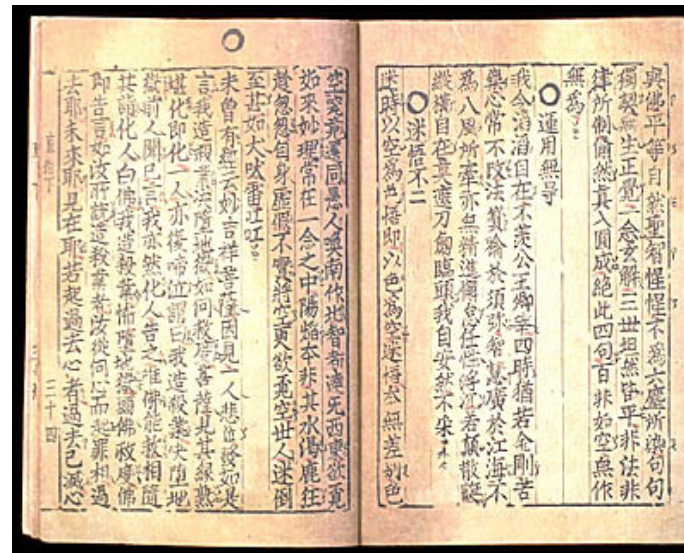 與佛平等自然聖智惺惺不為六塵所染句句
獨契無生正覺一念玄解三世坦然皆平非法非
律所制翛然真入圓成絕此四句百非如空無作
無為
○運用無导
我今滔滔自在不羨公王卿宰四時猶若金剛苦
樂心常不改法寶喻於須弥智慧廣於江海不
為八風所牽亦無精進懈怠任性浮沉若顛散誕
縱橫自在遮莫刀劒臨頭我自安然不采
○迷悟不二
迷時以空為色悟即以色為空迷悟本無差別色
空究竟還同愚人喚南作北智者達無西東欲覓
如來妙理常在一念之中陽焰本非其水渴鹿狂
趁忽忽自身虛假不實將空更欲覓空世人迷倒
至甚如犬吠雷吽吽
未曾有經云妙吉祥菩薩因見一人悲泣發如是
言我造殺業決墮地獄如何救度菩薩見其緣熟
堪化即化一人亦復啼泣謂曰我造殺業決墮地
獄前人聞已言我亦然化人告之唯佛能救相隨
共詣化人白佛我造殺業怖墮地獄願佛救度佛
即告言如汝所說造殺業者汝從何心而起罪相過
去耶未來耶見在耶若起過去心者過去已滅心
直指下
二十四